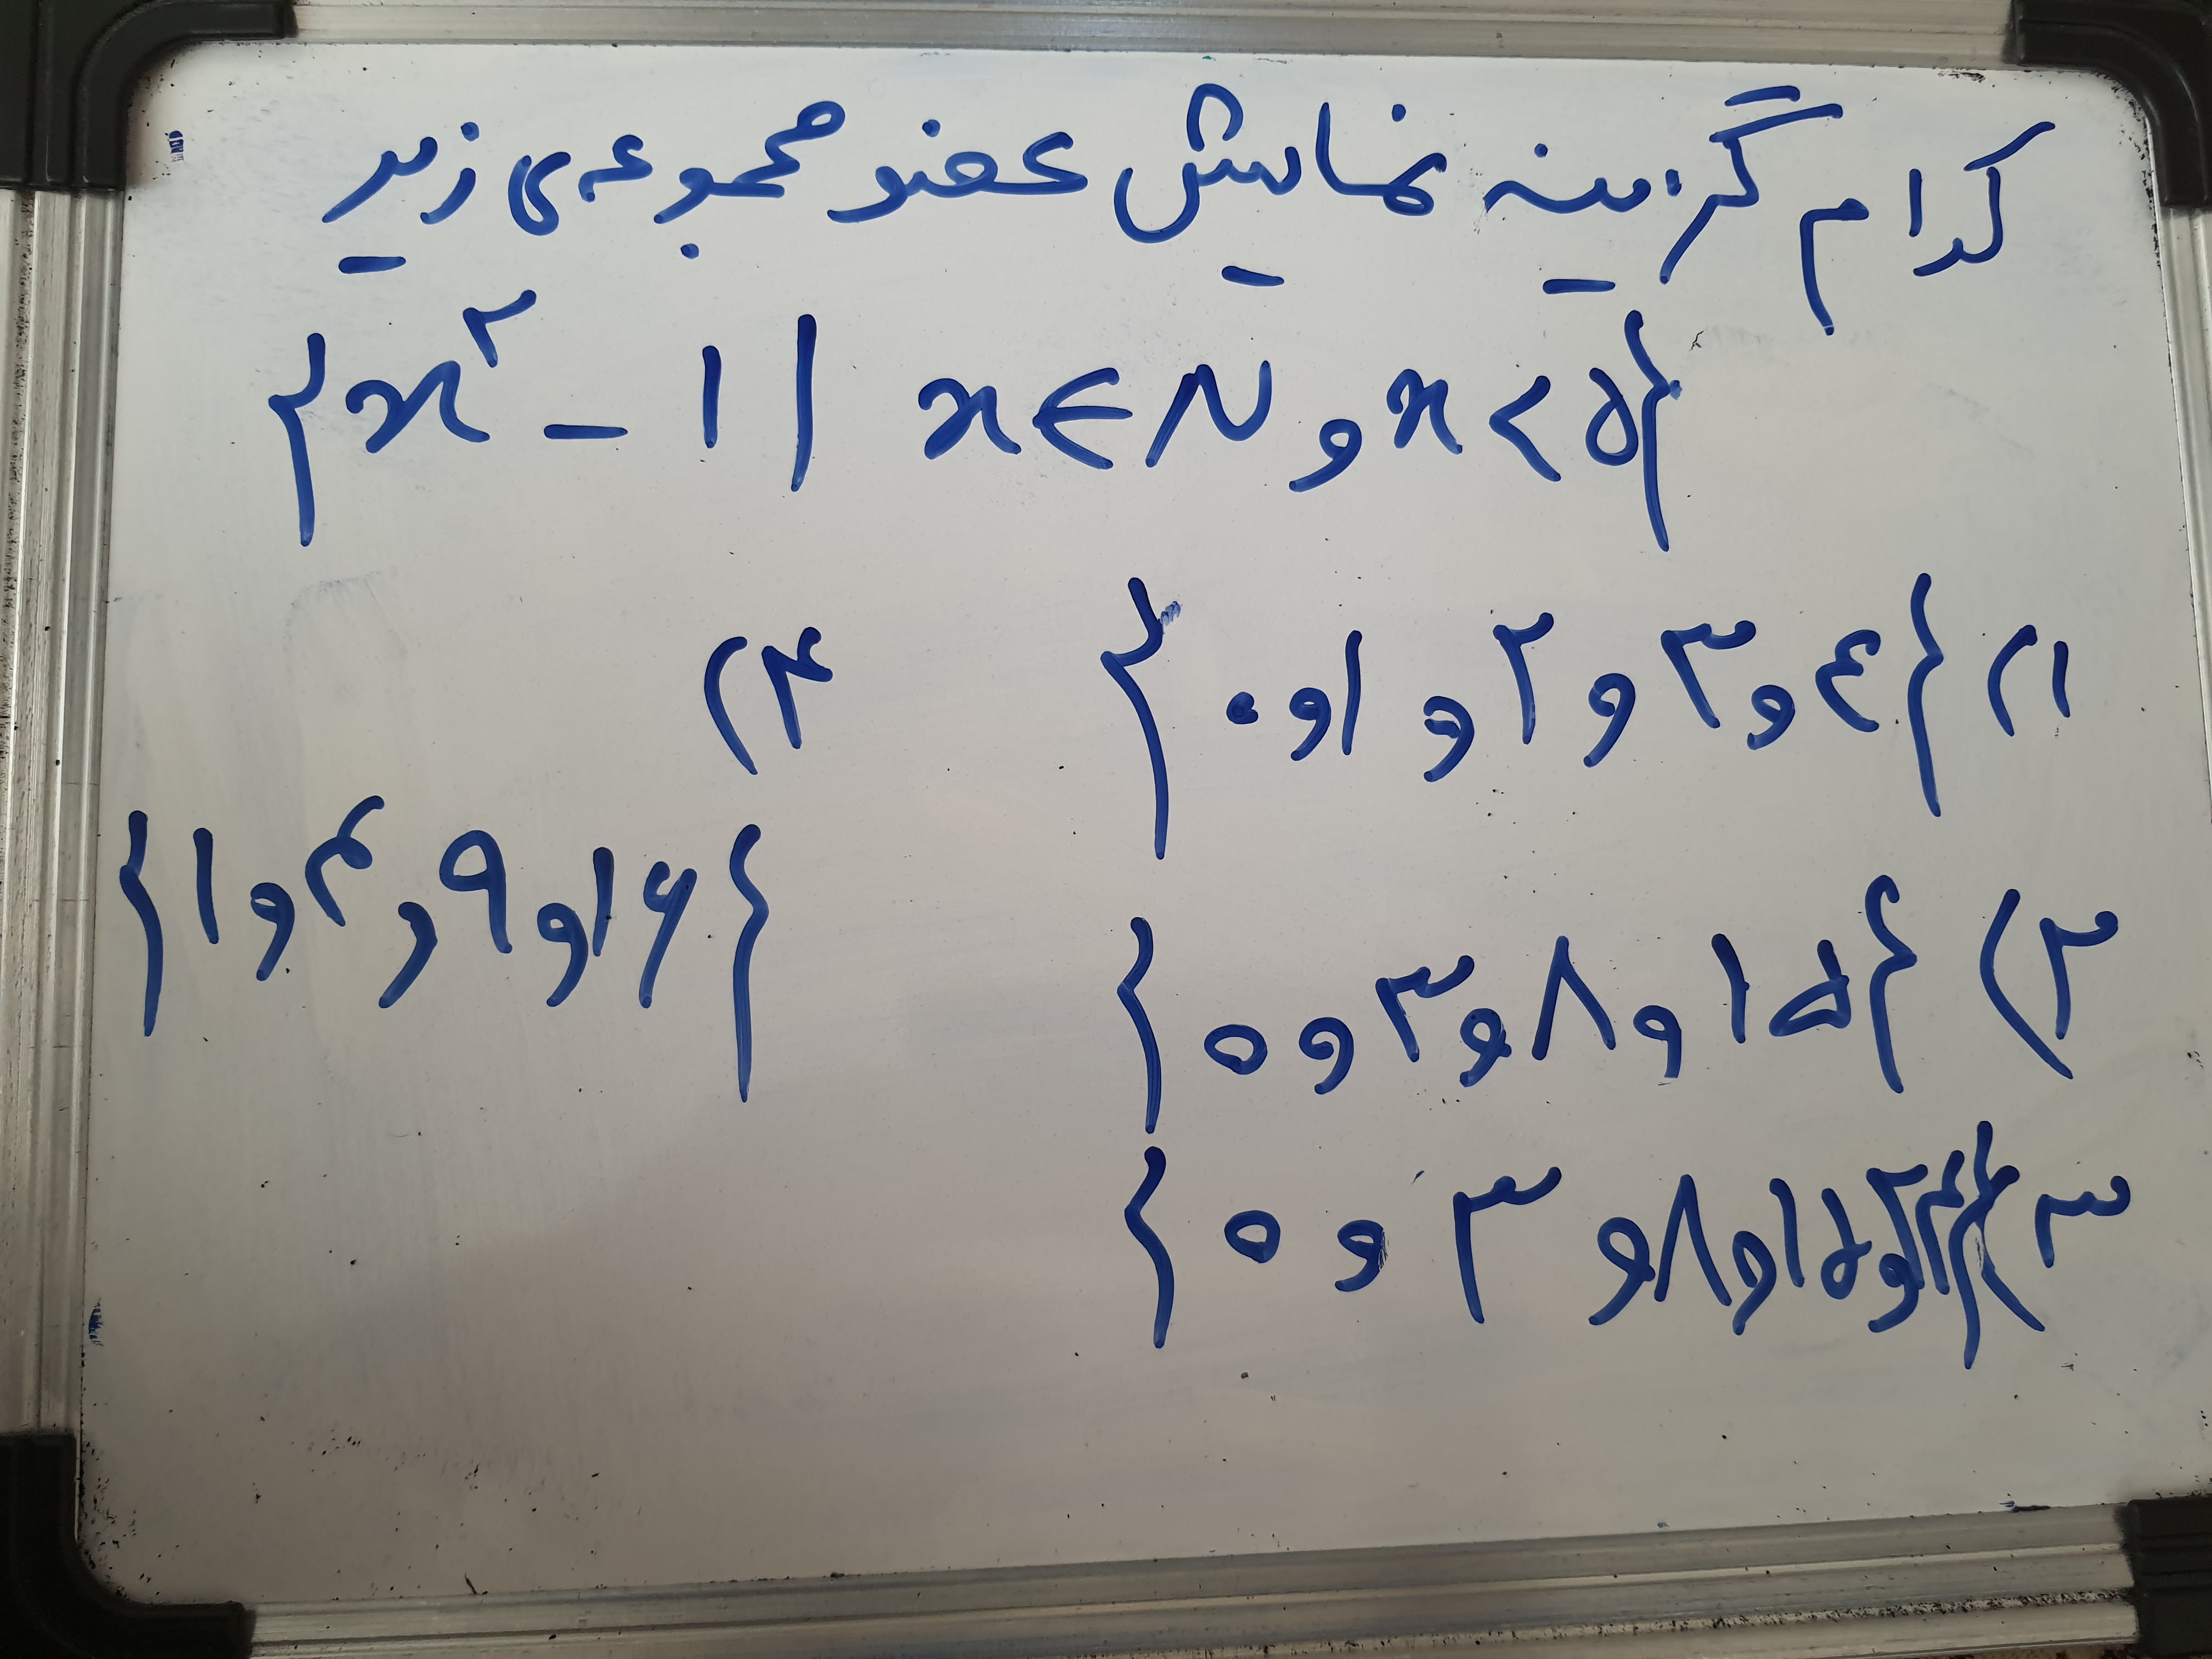 کدام گزینه نمایش عضو مجموعه‌ی زیر
{x² - ۱ | x ∈ N و x < ۵}
۱) {۰ و ۱ و ۲ و ۳ و ۴}
۲) {۰ و ۳ و ۸ و ۱۵}
۳) {۰ و ۳ و ۸ و ۱۵ و ۲۴}
۴)
{۱ و ۴ و ۹ و ۱۶}